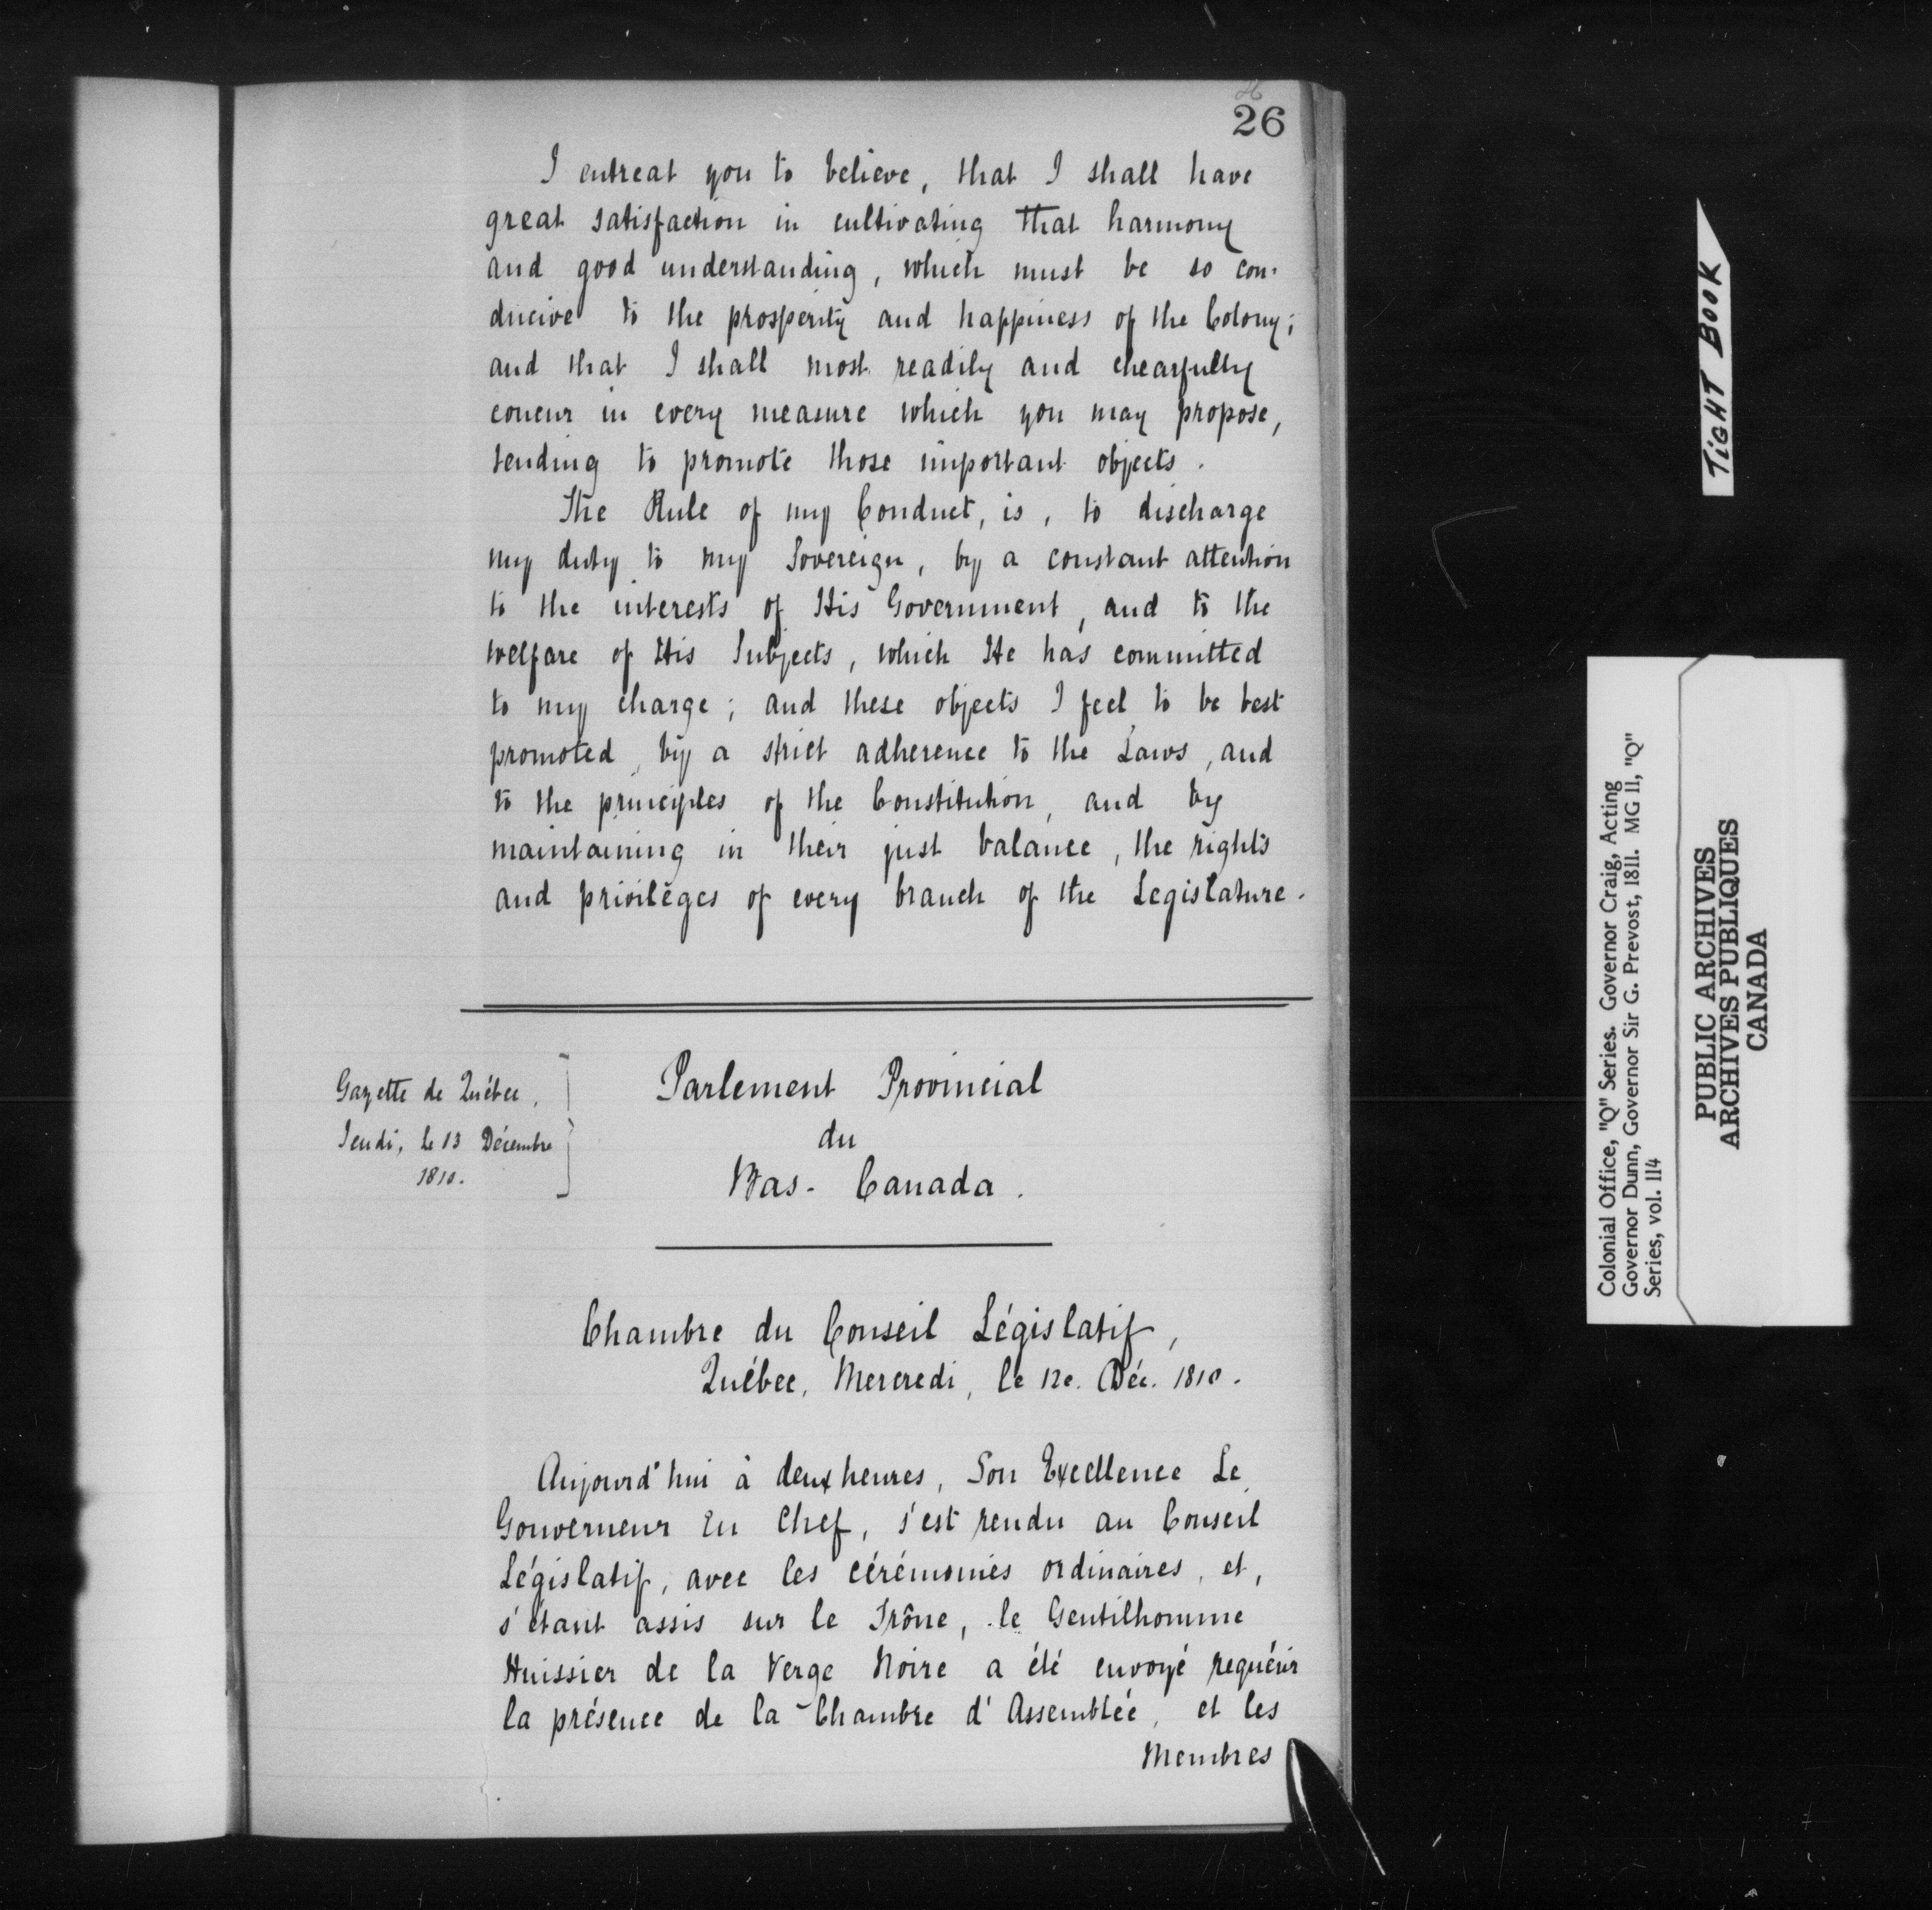 26
26
I entreat you to believe, that I shall have
great satisfaction in cultivating that harmony
and good understanding, which must be so con-
ducive to the prosperity and happiness of the Colony;
and that I shall most readily and chearfully
concur in every measure which you may propose,
tending to promote those important objects.
The Rule of my Conduct, is, to discharge
my duty to my Sovereign, by a constant attention
to the interests of His Government, and to the
welfare of His Subjects, which He has committed
to my charge; and these objects I feel to be best
promoted, by a strict adherence to the Laws, and
to the principles of the Constitution, and by
maintaining in their just balance, the rights
and privileges of every branch of the Legislature.
Gazette de Québec,
Jeudi, le 13 Décembre
1810.
Parlement Provincial
du
Bas-Canada.
Chambre du Conseil Législatif,
Québec, Mercredi, le 12e. Déc. 1810.
Aujourd'hui à deux heures, Son Excellence Le
Gouverneur En Chef, s'est rendu au Conseil
Législatif, avec les cérémonies ordinaires, et,
s'étant assis sur le Trône, le Gentilhomme
Huissier de la Verge Noire a été envoyé requérir
la présence de la Chambre d'Assemblée, et les
Membres
TIGHT BOOK
Colonial Office, "Q" Series. Governor Craig, Acting
Governor Dunn, Governor Sir G. Prevost, 1811. MG 11, "Q"
Series, vol. 114
PUBLIC ARCHIVES
ARCHIVES PUBLIQUES
CANADA